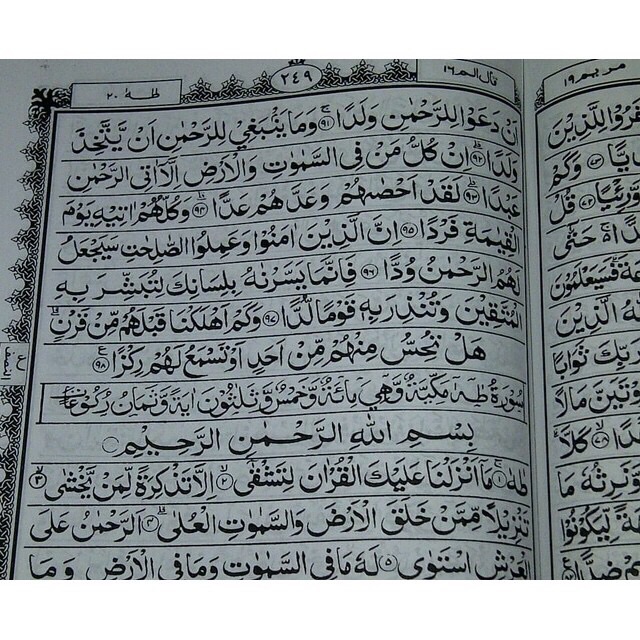 طٰهٰ ٢٠
٢٤٩
قال الم ١٦
اَنْ دَعَوْا لِلرَّحْمٰنِ وَلَدًا ۚ‏﴿٩١﴾ وَمَا يَنْۢبَغِيْ لِلرَّحْمٰنِ اَنْ يَّتَّخِذَ
وَلَدًا ؕ‏﴿٩٢﴾ اِنْ كُلُّ مَنْ فِي السَّمٰوٰتِ وَالْاَرْضِ اِلَّاۤ اٰتِي الرَّحْمٰنِ
عَبْدًا ؕ‏﴿٩٣﴾ لَقَدْ اَحْصٰىهُمْ وَعَدَّهُمْ عَدًّا ؕ‏﴿٩٤﴾ وَكُلُّهُمْ اٰتِيْهِ يَوْمَ
الْقِيٰمَةِ فَرْدًا ‏﴿٩٥﴾ اِنَّ الَّذِيْنَ اٰمَنُوْا وَعَمِلُوا الصّٰلِحٰتِ سَيَجْعَلُ
لَهُمُ الرَّحْمٰنُ وُدًّا ‏﴿٩٦﴾ فَاِنَّمَا يَسَّرْنٰهُ بِلِسَانِكَ لِتُبَشِّرَ بِهِ
الْمُتَّقِيْنَ وَتُنْذِرَ بِهٖ قَوْمًا لُّدًّا ‏﴿٩٧﴾ وَكَمْ اَهْلَكْنَا قَبْلَهُمْ مِّنْ قَرْنٍ ؕ
هَلْ تُحِسُّ مِنْهُمْ مِّنْ اَحَدٍ اَوْ تَسْمَعُ لَهُمْ رِكْزًا ‏﴿٩٨﴾
سُوْرَةُ طٰهٰ مَكِّيَّةٌ وَّهِيَ مِائَةٌ وَّخَمْسٌ وَّثَلٰثُوْنَ اٰيَةً وَّثَمَانُ رُكُوْعَاتٍ
بِسْمِ اللّٰهِ الرَّحْمٰنِ الرَّحِيْمِ
طٰهٰ ۚ‏﴿١﴾ مَاۤ اَنْزَلْنَا عَلَيْكَ الْقُرْاٰنَ لِتَشْقٰٓى ۙ‏﴿٢﴾ اِلَّا تَذْكِرَةً لِّمَنْ يَّخْشٰى ۙ‏﴿٣﴾
تَنْزِيْلًا مِّمَّنْ خَلَقَ الْاَرْضَ وَالسَّمٰوٰتِ الْعُلٰى ؕ‏﴿٤﴾ اَلرَّحْمٰنُ عَلَى
الْعَرْشِ اسْتَوٰى ‏﴿٥﴾ لَهٗ مَا فِي السَّمٰوٰتِ وَمَا فِي الْاَرْضِ وَمَا
مريم ١٩
كَفَرُوْا لِلَّذِيْنَ
﴿٧٣﴾ وَكَمْ
وَّرِءْيًا ‏﴿٧٤﴾ قُلْ
حَتّٰٓى
فَسَيَعْلَمُوْنَ
اللّٰهُ الَّذِيْنَ
رَبِّكَ ثَوَابًا
لَاُوْتَيَنَّ مَالًا
﴿٧٨﴾ كَلَّا ؕ
وَّنَرِثُهٗ مَا
لِّيَكُوْنُوْا
ضِدًّا